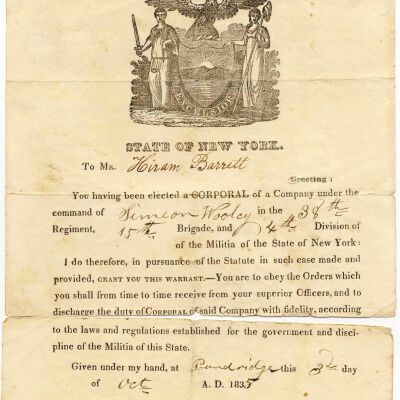 EXCELSIOR
STATE OF NEW YORK.
To Mr. Hiram Barrett
Greeting:
You having been elected a CORPORAL of a Company under the
command of Simeon Woolcy in the 38th
Regiment, 15th Brigade, and 4th Division of
of the Militia of the State of New York:
I do therefore, in pursuance of the Statute in such case made and
provided, GRANT YOU THIS WARRANT.—You are to obey the Orders which
you shall from time to time receive from your superior Officers, and to
discharge the duty of CORPORAL of said Company with fidelity, according
to the laws and regulations established for the government and disci-
pline of the Militia of this State.
Given under my hand, at Poundridge this 3rd day
of Oct A. D. 1835